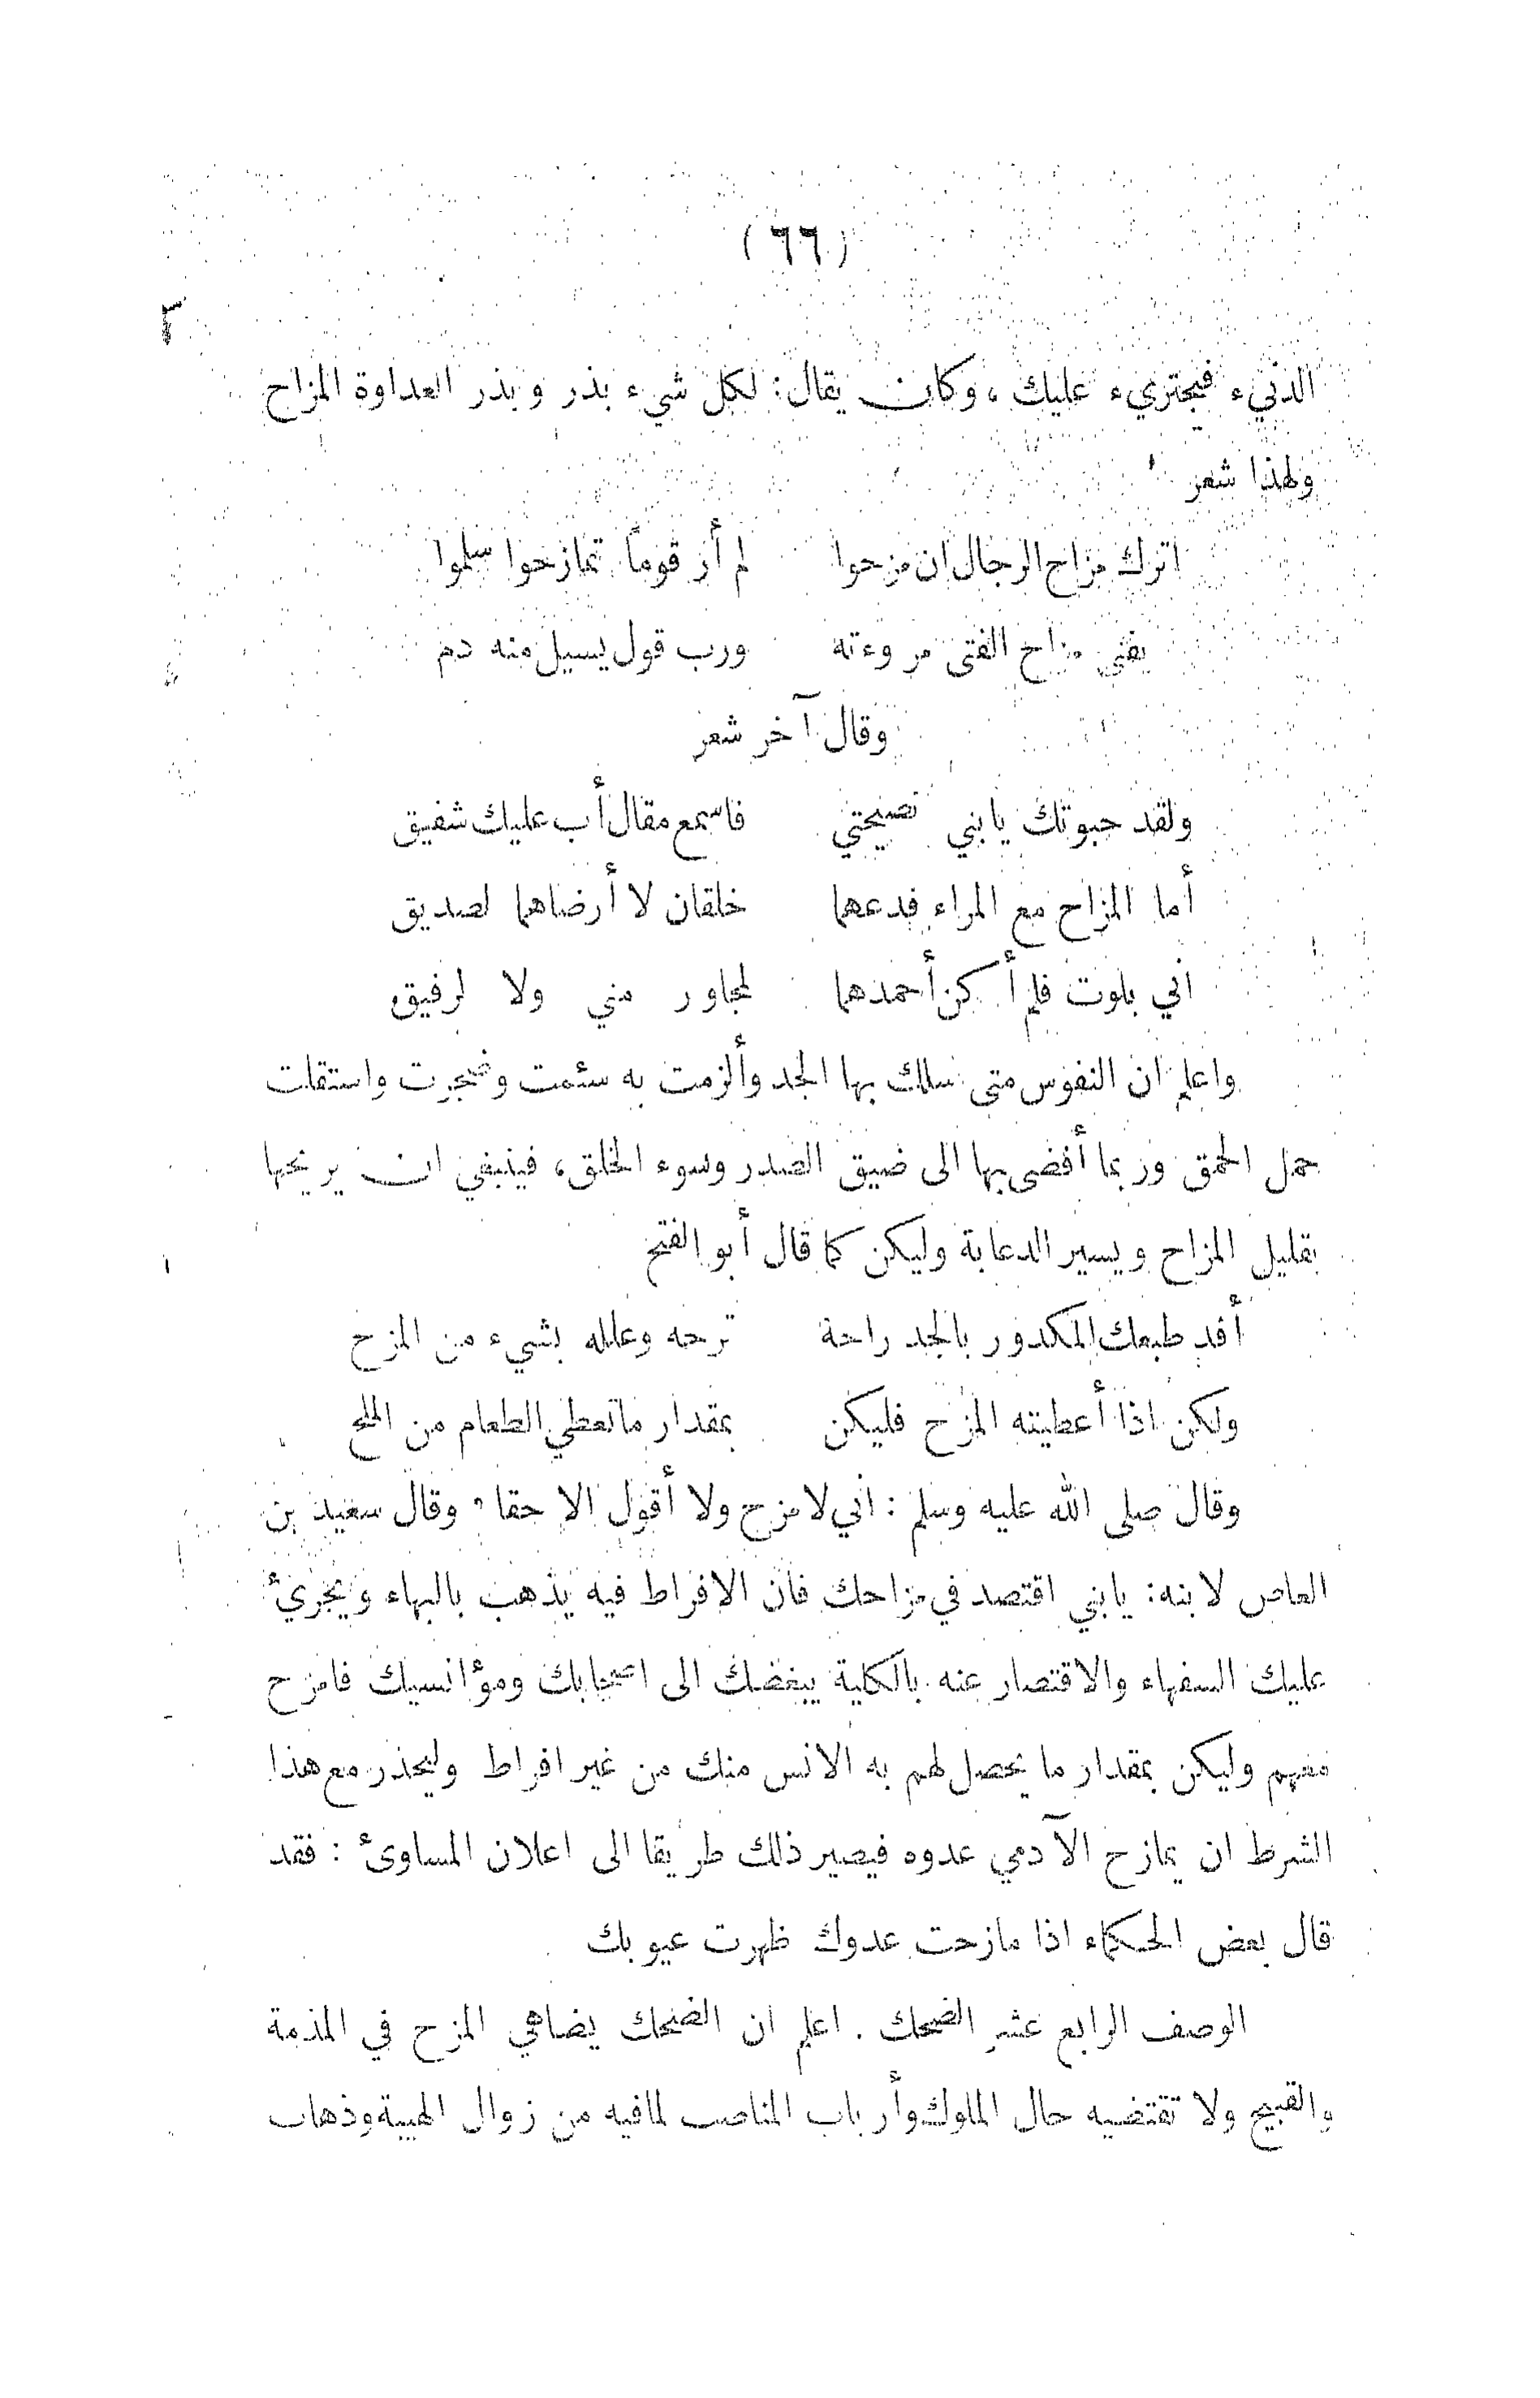 (٦٦)
الدنيء فيجتريء عليك ، وكان يقال: لكل شيء بذر وبذر العداوة المزاح
ولهذا شعر
اترك مزاح الرجال ان مزحوا لم أر قوماً تمازحوا سلموا
يفني مزاح الفتى مروءته ورب قول يسيل منه دم
وقال آخر شعر
ولقد حبوتك يابني نصيحتي فاسمع مقال أب عليك شفيق
أما المزاح مع المراء فدعهما خلقان لا أرضاهما لصديق
اني بلوت فلم أكن أحمدهما لمجاور مني ولا لرفيق
واعلم ان النفوس متى سلك بها الجد وألزمت به سئمت وضجرت واستقلت
حمل الحمق وربما أفضى بها الى ضيق الصدر وسوء الخلق، فينبغي ان يريحها
بقليل المزاح ويسير الدعابة وليكن كما قال أبو الفتح
أفد طبعك المكدور بالجد راحة ترحه وعلله بشيء من المزح
ولكن اذا أعطيته المزح فليكن بمقدار ماتعطي الطعام من الملح
وقال صلى الله عليه وسلم : اني لامزح ولا أقول الا حقا ، وقال سعيد بن
العاص لابنه: يابني اقتصد في مزاحك فان الافراط فيه يذهب بالبهاء ويجرئ
عليك السفهاء والاقتصار عنه بالكلية يبغضك الى اصحابك ومؤانسيك فامزح
معهم وليكن بمقدار ما يحصل لهم به الانس منك من غير افراط وليحذر مع هذا
الشرط ان يمازح الآدمي عدوه فيصير ذلك طريقا الى اعلان المساوئ : فقد
قال بعض الحكماء اذا مازحت عدوك ظهرت عيوبك
الوصف الرابع عشر الضحك . اعلم ان الضحك يضاهي المزح في المذمة
والقبيح ولا تقتضيه حال الملوك وأرباب المناصب لمافيه من زوال الهيبة وذهاب